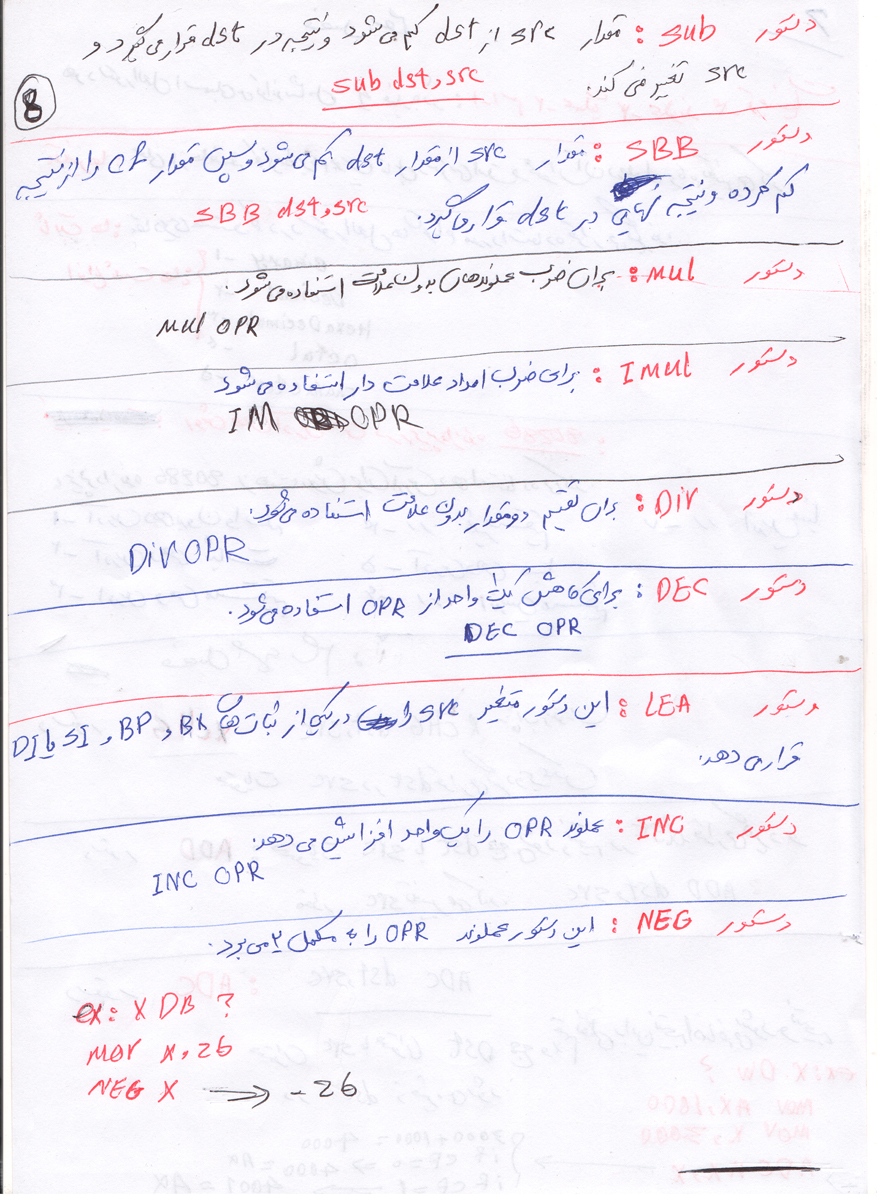 دستور sub : مقدار src از dst کم می شود و نتیجه در dst قرار می گیرد و
src تغیر نمی کند.
sub dst,src
8
دستور SBB : مقدار src از مقدار dst کم می شود و سپس مقدار CF را از نتیجه
کم کرده و نتیجه نهایی در dst قرار میگیرد. SBB dst,src
دستور MUL : برای ضرب عملوندهای بدون علامت استفاده می شود.
MUL OPR
دستور IMUL : برای ضرب اعداد علامت دار استفاده می شود
IM OPR
دستور Div : برای تقسیم دو مقدار بدون علامت استفاده میشود.
Div OPR
دستور DEC : برای کاهش یک واحد از OPR استفاده می شود.
DEC OPR
دستور LEA : این دستور متغیر src را در یکی از ثبات های BX و BP و SI یا DI
قرار می دهد.
دستور INC : عملوند OPR را یک واحد افزایش می دهد.
INC OPR
دستور NEG : این دستور عملوند OPR را به مکمل ۲ می برد.
ex: X DB ?
MOV X,26
NEG X ⟹ -26